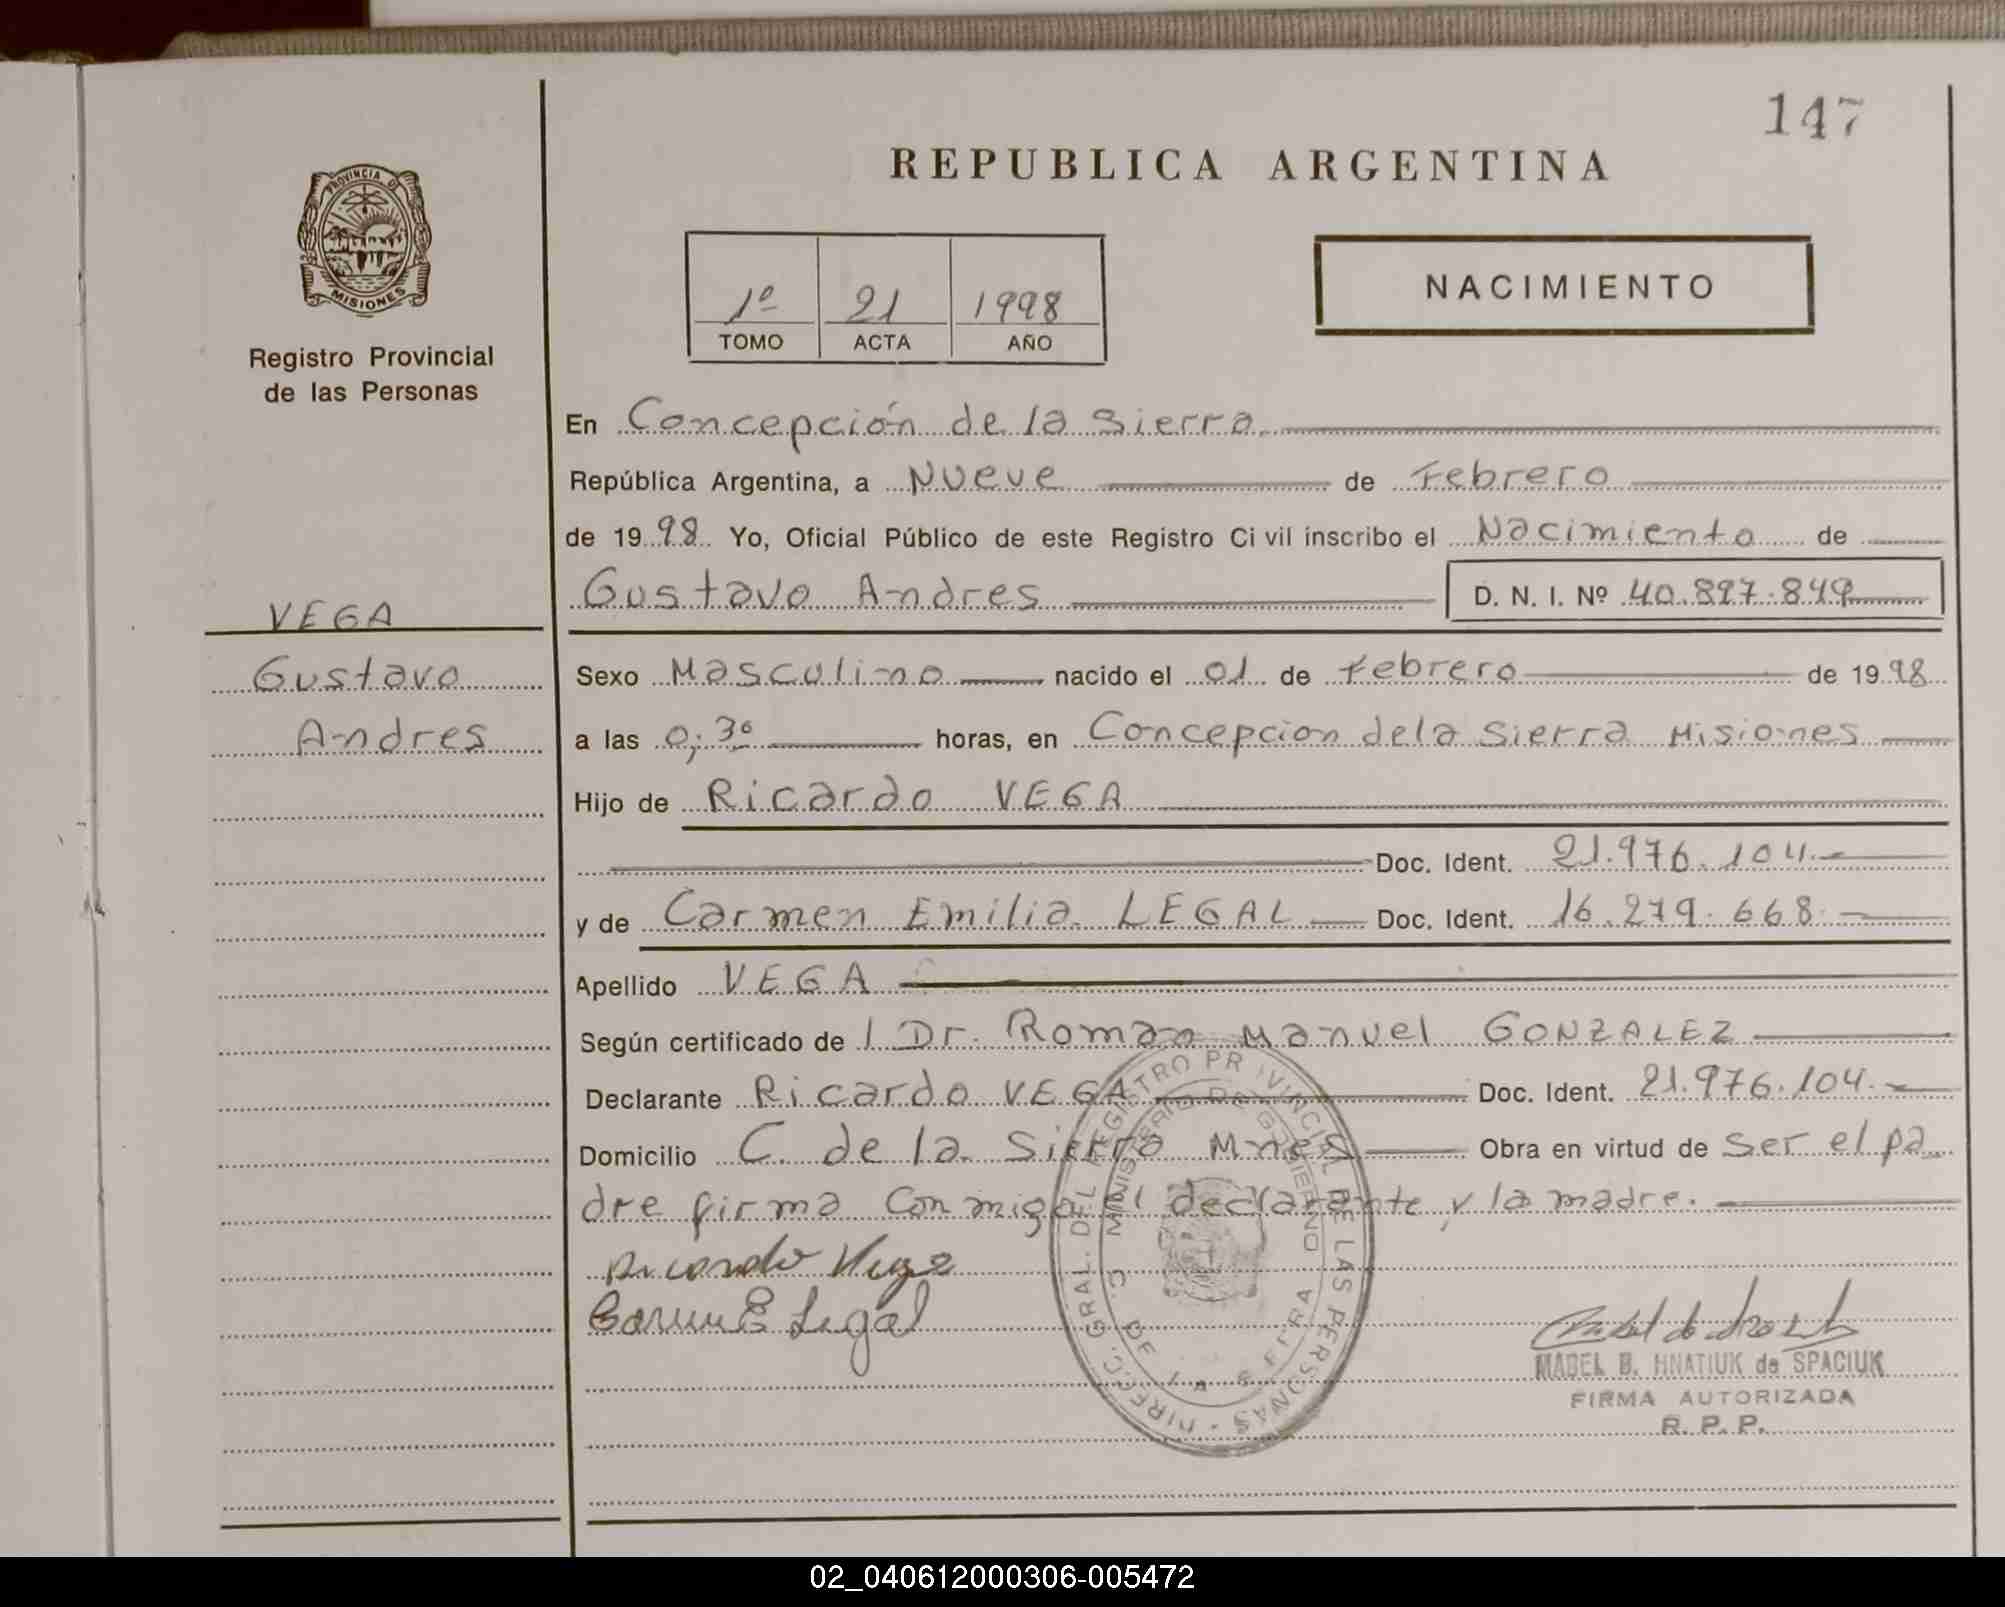 147
REPUBLICA ARGENTINA
PROVINCIA DE
MISIONES
Registro Provincial
de las Personas
1º 21 1998
TOMO ACTA AÑO
NACIMIENTO
En Concepción de la Sierra
República Argentina, a Nueve de Febrero
de 1998 Yo, Oficial Público de este Registro Civil inscribo el Nacimiento de
Gustavo Andres D. N. I. Nº 40.897.849
VEGA
Gustavo
Andres
Sexo Masculino nacido el 01 de Febrero de 1998
a las 0;30 horas, en Concepcion dela Sierra Misiones
Hijo de Ricardo VEGA
Doc. Ident. 21.976.104.
y de Carmen Emilia LEGAL Doc. Ident. 16.279.668
Apellido VEGA
Según certificado de l Dr. Roman Manuel GONZALEZ
Declarante Ricardo VEGA Doc. Ident. 21.976.104.
Domicilio C. de la Sierra Mnes Obra en virtud de ser el pa
dre firma conmigo el declarante y la madre.
Ricardo Vega
Carmen E Legal
DIRECC. GRAL. DEL REGISTRO PROVINCIAL DE LAS PERSONAS
MINISTERIO DE GOBIERNO
C. DE LA SIERRA
MABEL B. HNATIUK de SPACIUK
FIRMA AUTORIZADA
R. P. P.
02_040612000306-005472